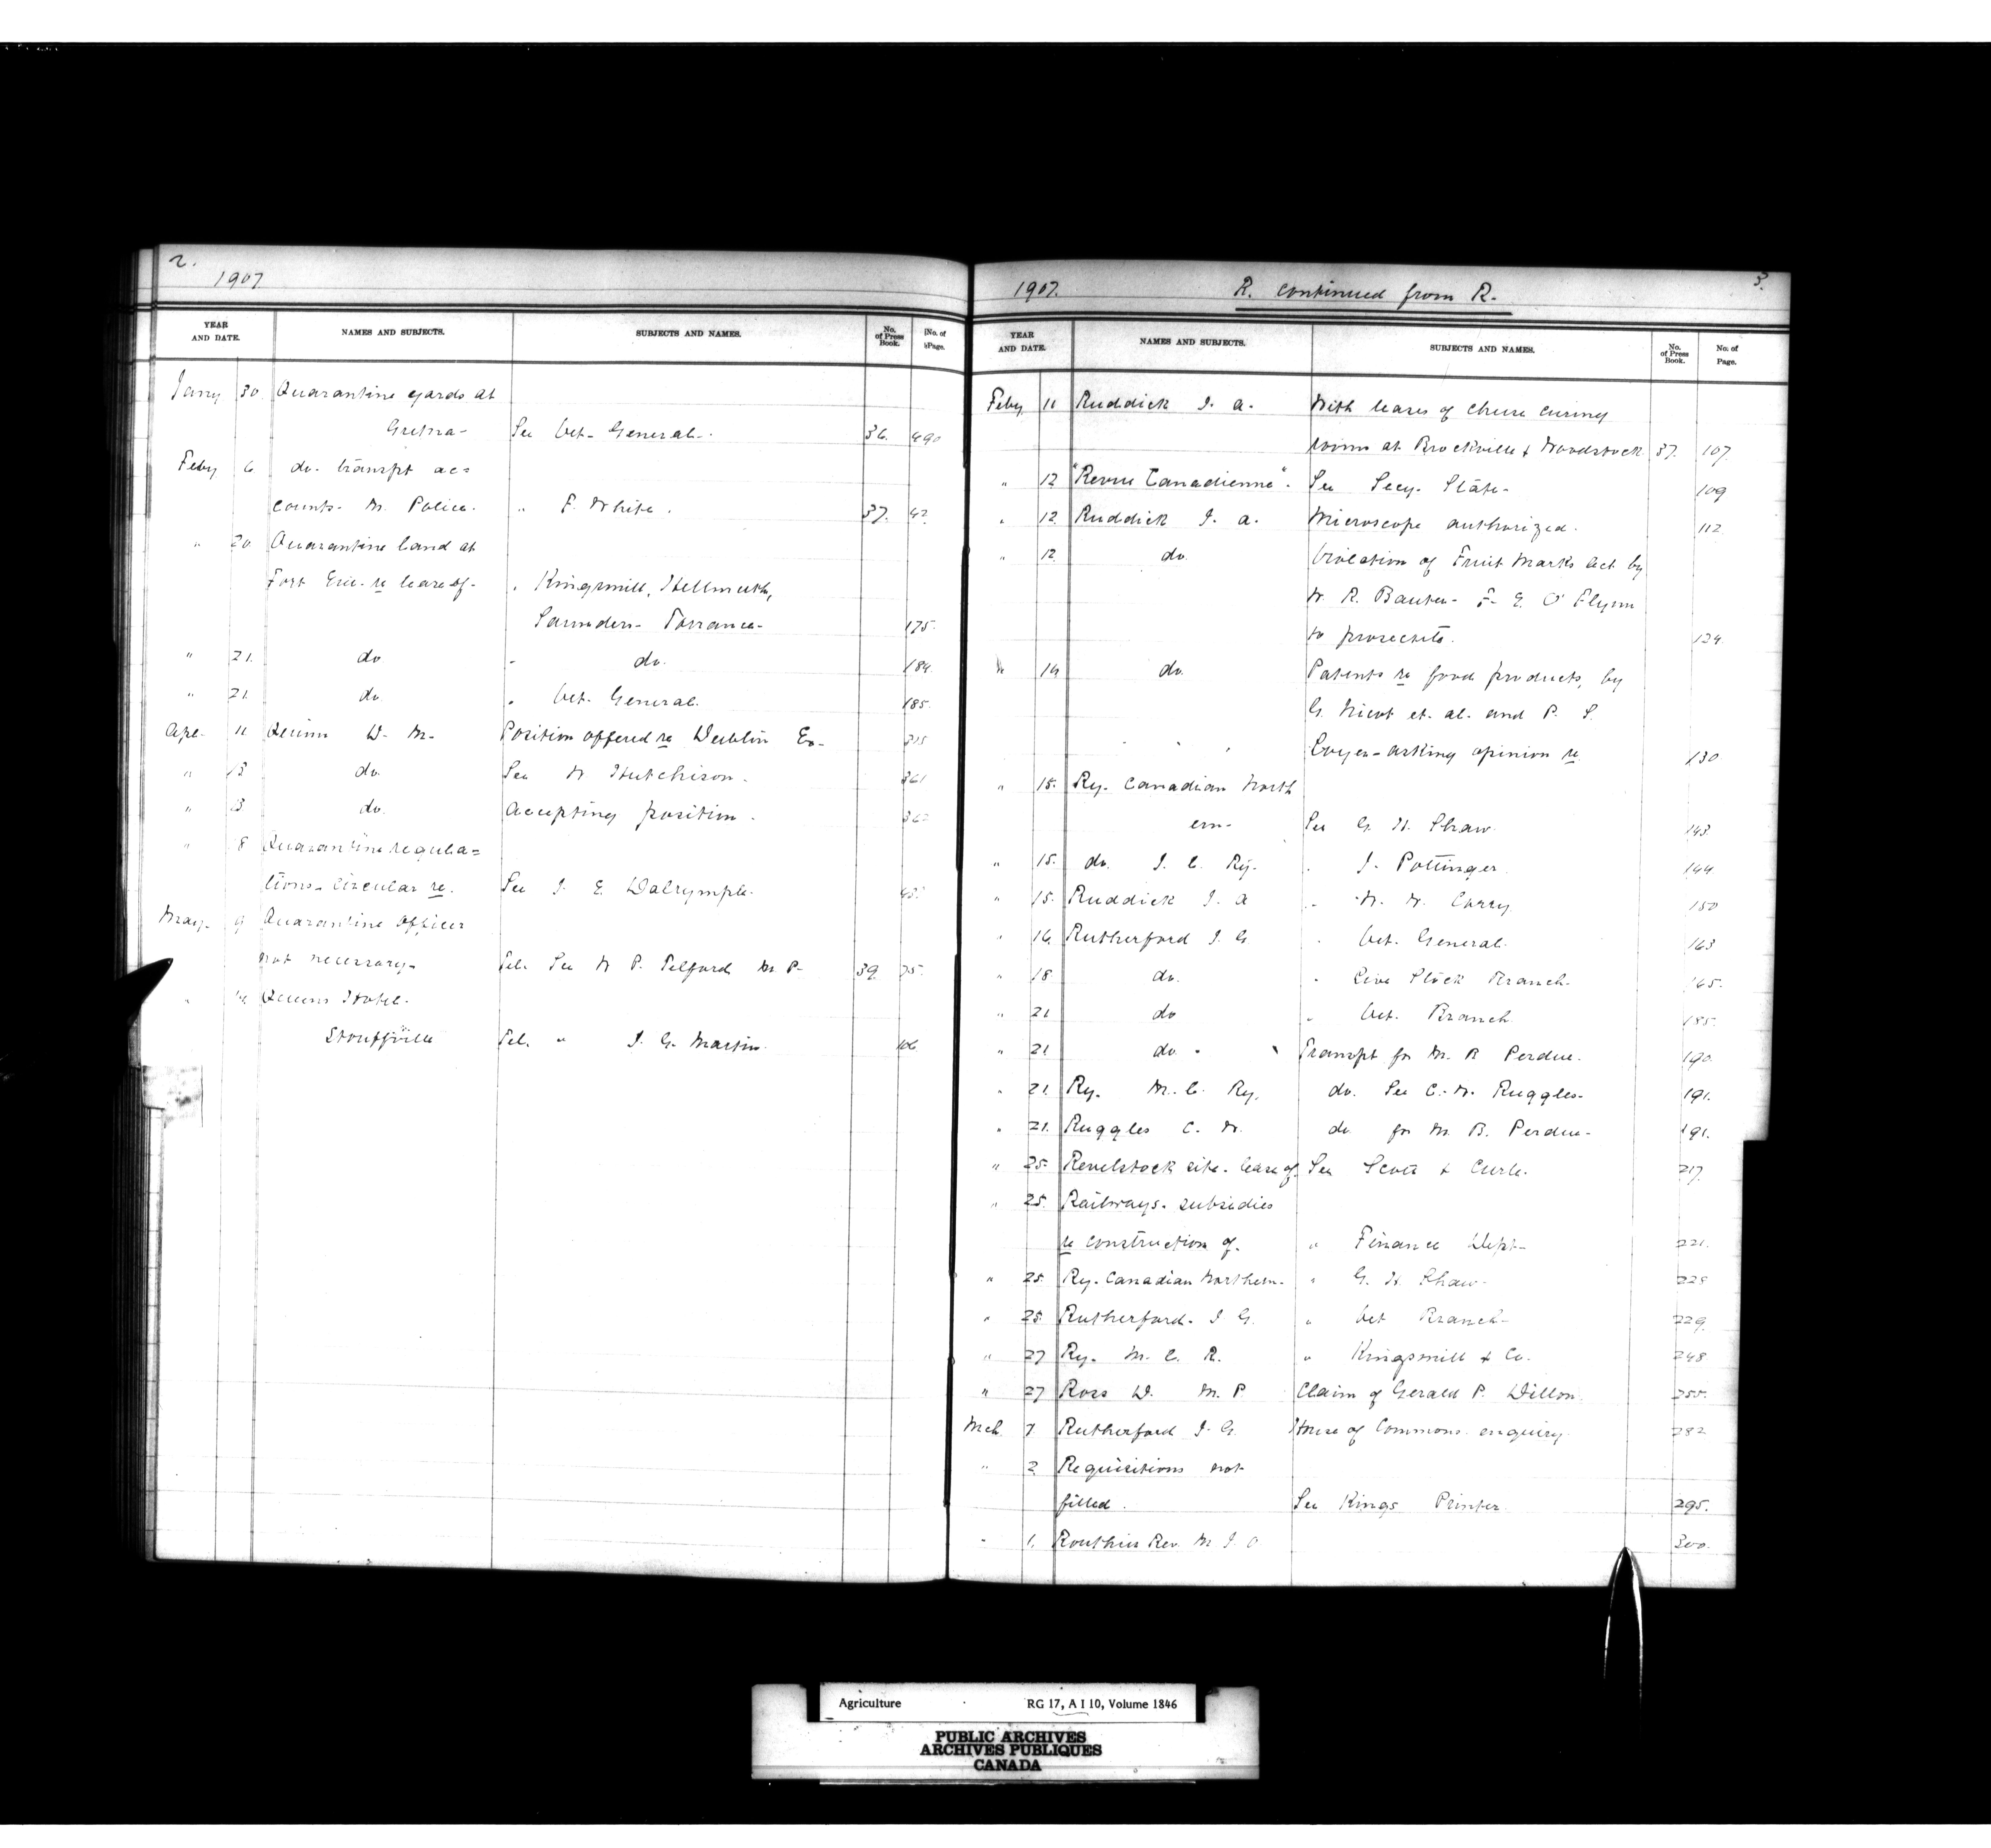 2.
1907
YEAR AND DATE. NAMES AND SUBJECTS. SUBJECTS AND NAMES. No. of Press Book. No. of Page.
Jany 30 Quarantine yards at
Gretna- See Vet. General. 36. 490
Feby 6 do. transpt ac=
counts- M. Police. " F. White. 37. 42
" 20 Quarantine land at
Fort Erie- re lease of- " Kingsmill, Hellmuth,
Saunders- Torrance- 175.
" 21. do " do. 184.
" 21. do " Vet. General. 185.
Apl- 11 Quinn W. M- Position offered re Dublin Ex-
" 13 do. See W. Hutchison. 361
" 13 do. Accepting position.
" 18 Quarantine regula=
tions- circular re. See J. E. Dalrymple.
May- 9 Quarantine Officer
not necessary- Tel. See W P. Telford M P- 39. 75.
" 14 Queens Hotel.
Stouffville Tel. " J. G. Martin. 106
1907. R. continued from R. 3.
YEAR AND DATE. NAMES AND SUBJECTS. SUBJECTS AND NAMES. No. of Press Book. No. of Page.
Feby 11 Ruddick J. A. With leases of cheese curing
rooms at Brockville & Woodstock 37. 107.
" 12 "Revue Canadienne". See Secy. State- 109
" 12 Ruddick J. A. Microscope authorized. 112
" 12. do. Violation of Fruit Marks Act by
W. R. Bauter- F. E. O'Flynn
to prosecute. 124.
" 14 do. Patents re food products, by
G. Nicot et. al. and P. S.
asking opinion re 130
" 15. Ry. Canadian North
ern- See G. H. Shaw 143
" 15. do. I. C. Ry. " J. Pottinger 144
" 15. Ruddick J. A " W. W. Corry 150
" 16. Rutherford J. G. " Vet. General. 163
" 18 do. " Live Stock Branch. 165.
" 21 do " Vet. Branch 185.
" 21 do. " Transpt for M. B Perdue. 190.
" 21. Ry. M. C. Ry. do. See C. W. Ruggles- 191.
" 21. Ruggles C. W. do for M. B. Perdue- 191.
" 25. Revelstock site. lease of See Scott & Curle. 217.
" 25. Railways. subsidies
re construction of. " Finance Dept- 221.
" 25. Ry. Canadian Northern. " G. H. Shaw- 228
" 25. Rutherford. J G. " Vet Branch- 229
" 27 Ry. M. C. R. " Kingsmill & Co. 248
" 27 Ross D. M. P Claim of Gerald P. Dillon. 255.
Mch 7 Rutherford J. G. House of Commons enquiry. 282
" 2 Requisitions not
filled. See Kings Printer 295.
" 1. Routhier Rev. M J. O 300.
Agriculture RG 17, A I 10, Volume 1846
PUBLIC ARCHIVES
ARCHIVES PUBLIQUES
CANADA